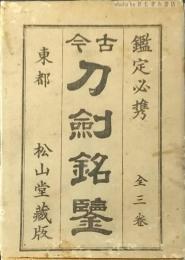 鑑定必携
全三巻
古今
刀劍銘鑒
東都 松山堂藏版